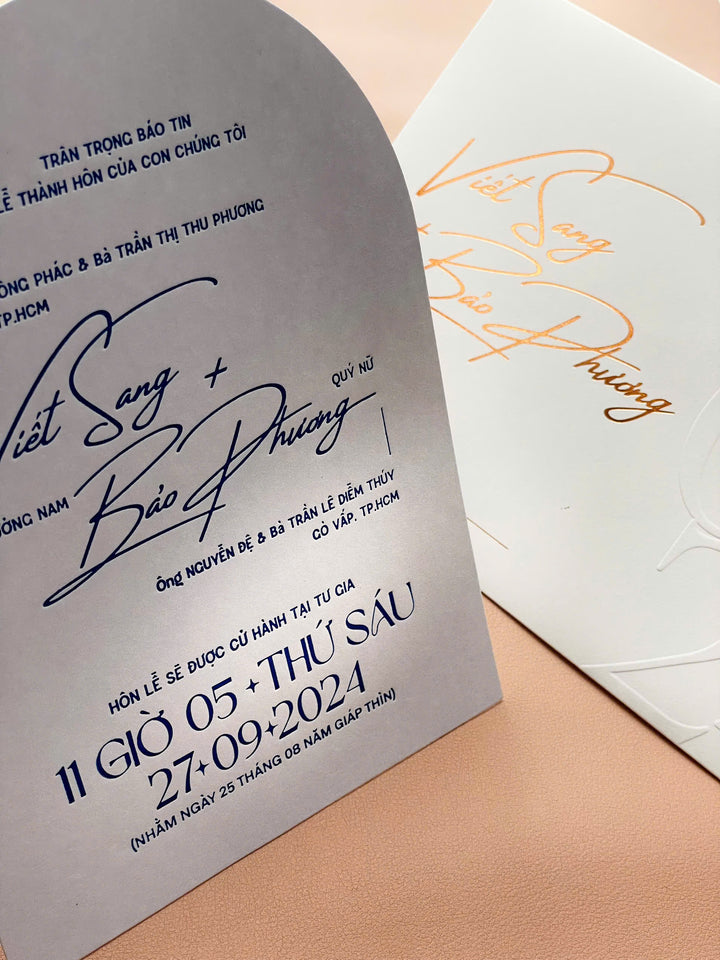 TRÂN TRỌNG BÁO TIN
LỄ THÀNH HÔN CỦA CON CHÚNG TÔI
PHÁC & Bà TRẦN THỊ THU PHƯƠNG
TP.HCM
Viết Sang +
QUÝ NỮ
Bảo Phương
NAM
Ông NGUYỄN ĐỆ & Bà TRẦN LÊ DIỄM THÚY
GÒ VẤP. TP.HCM
HÔN LỄ SẼ ĐƯỢC CỬ HÀNH TẠI TƯ GIA
11 GIỜ 05 + THỨ SÁU
27+09+2024
(NHẰM NGÀY 25 THÁNG 08 NĂM GIÁP THÌN)
Viết Sang
+ Bảo Phương